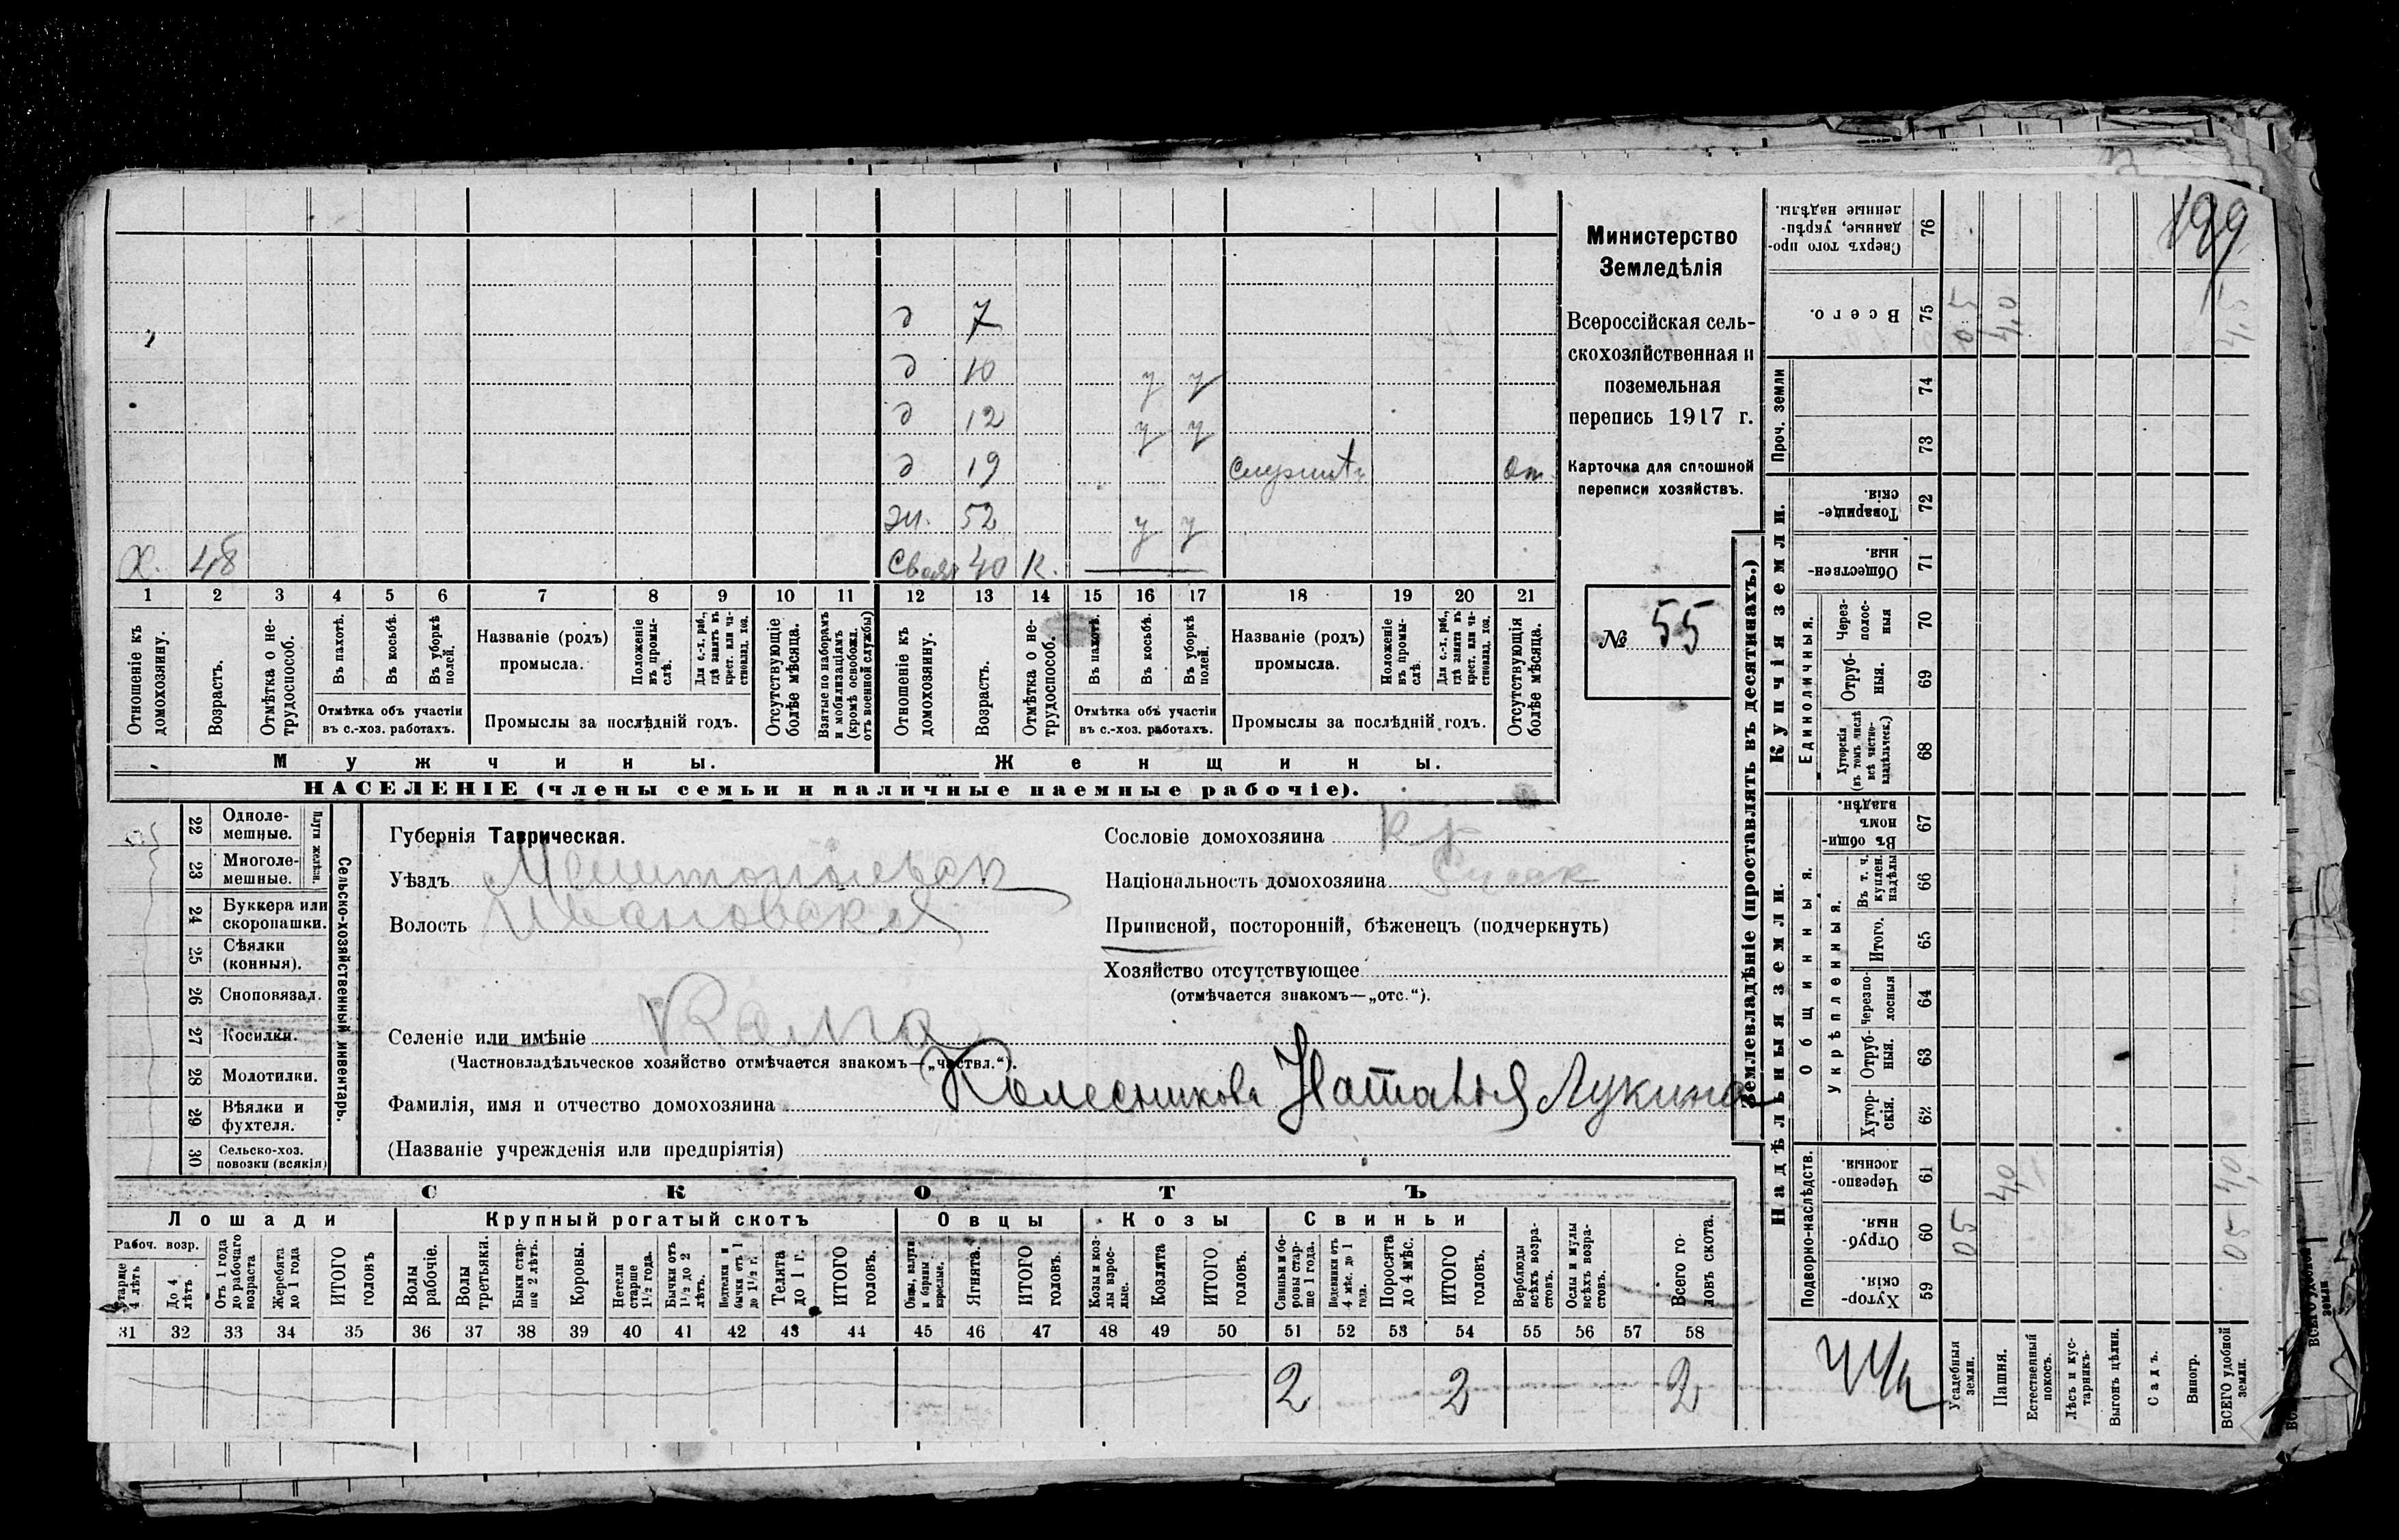 199
7
д 7
д 10 у у
д 12 у у
д 19 От.
52 у у
Х. 48 40 К.
1 2 3 4 5 6 7 8 9 10 11 12 13 14 15 16 17 18 19 20 21
Отношеніе къ домохозяину.
Возрастъ.
Отмѣтка о не-трудоспособ.
Въ пахотѣ.
Въ косьбѣ.
Въ уборкѣ полей.
Отмѣтка объ участіи
въ с.-хоз. работахъ.
Названіе (родъ)
промысла.
Положеніе въ промы-слѣ.
Для с.-х. раб., гдѣ занятъ въ крест. или ча-стновлад. хоз.
Промыслы за послѣдній годъ.
Отсутствующіе болѣе мѣсяца.
Взятые по наборамъ и мобилизаціямъ (кромѣ освобожд. отъ военной службы)
Отношеніе къ домохозяину.
Возрастъ.
Отмѣтка о не-трудоспособ.
Въ пахотѣ.
Въ косьбѣ.
Въ уборкѣ полей.
Отмѣтка объ участіи
въ с.-хоз. работахъ.
Названіе (родъ)
промысла.
Положеніе въ промы-слѣ.
Для с.-х. раб., гдѣ занята въ крест. или ча-стновлад. хоз.
Промыслы за послѣдній годъ.
Отсутствующія болѣе мѣсяца.
Мужчины. Женщины.
НАСЕЛЕНІЕ (члены семьи и наличные наемные рабочіе).
Министерство
Земледѣлія
Всероссійская сель-
скохозяйственная и
поземельная
перепись 1917 г.
Карточка для сплошной
переписи хозяйствъ.
№ 55
22 Одноле-
мешные.
23 Многоле-
мешные.
Плуги желѣзн.
24 Буккера или
скоропашки.
25 Сѣялки
(конныя).
26 Сноповязал.
27 Косилки.
28 Молотилки.
29 Вѣялки и
фухтеля.
30 Сельско-хоз.
повозки (всякія)
Сельско-хозяйственный инвентарь.
Губернія Таврическая.
Уѣздъ Мелитопольск
Волость Ивановская
Селеніе или имѣніе
(Частновладѣльческое хозяйство отмѣчается знакомъ—„частвл.“).
Фамилія, имя и отчество домохозяина Колесникова Наталья Лукина
(Названіе учрежденія или предпріятія)
Сословіе домохозяина Кр
Національность домохозяина
Приписной, посторонній, бѣженецъ (подчеркнуть)
Хозяйство отсутствующее
(отмѣчается знакомъ—„отс.“).
СКОТЪ
Лошади Крупный рогатый скотъ Овцы Козы Свиньи
Рабоч. возр.
Старше 4 лѣтъ
До 4 лѣтъ
Отъ 1 года до рабочаго возраста
Жеребята до 1 года
ИТОГО головъ
Волы рабочіе.
Волы третьяки.
Быки стар-ше 2 лѣтъ.
Коровы.
Нетели старше 1½ года.
Бычки отъ 1½ до 2 лѣтъ.
Подтелки и бычки отъ 1 до 1½ г.
Телята до 1 г.
ИТОГО головъ.
Овцы, валухи и бараны взрослые.
Ягнята.
ИТОГО головъ.
Козы и коз-лы взрос-лые.
Козлята
ИТОГО головъ.
Свиньи и бо-ровы стар-ше 1 года.
Подсвинки отъ 4 мѣс. до 1 года.
Поросята до 4 мѣс.
ИТОГО головъ.
Верблюды всѣхъ возра-стовъ.
Ослы и мулы всѣхъ возра-стовъ.
Всего го-ловъ скота.
31 32 33 34 35 36 37 38 39 40 41 42 43 44 45 46 47 48 49 50 51 52 53 54 55 56 57 58
2 2 2
Землевладѣніе (проставлять въ десятинахъ.)
Купчія земли.
Надѣльныя земли.
Сверхъ того про-данные, укрѣп-ленные надѣлы. 76
Всего. 75 0,5 4,0 4,5
Проч. земли 74
73
Товарище-скія. 72
Обществен-ныя. 71
Единоличныя.
Через-полос-ныя 70
Отруб-ныя. 69
Хуторскія (въ томъ числѣ всѣ частно-владѣльческ.) 68
Общинныя.
Въ общи-номъ владѣн. 67
Укрѣпленныя.
Въ т. ч. куплен. надѣлы 66
Итого. 65
Черезпо-лосныя 64
Отруб-ныя. 63
Хутор-скія. 62
Подворно-наслѣдств.
Черезпо-лосныя. 61 4,0 4,0
Отруб-ныя. 60 05 05
Хутор-скія. 59
Усадебныя земли.
Пашня.
Естественный покосъ.
Лѣсъ и кус-тарникъ.
Выгонъ цѣлин.
Садъ.
Виногр.
ВСЕГО удобной земли.
ВСЕГО удобной земли